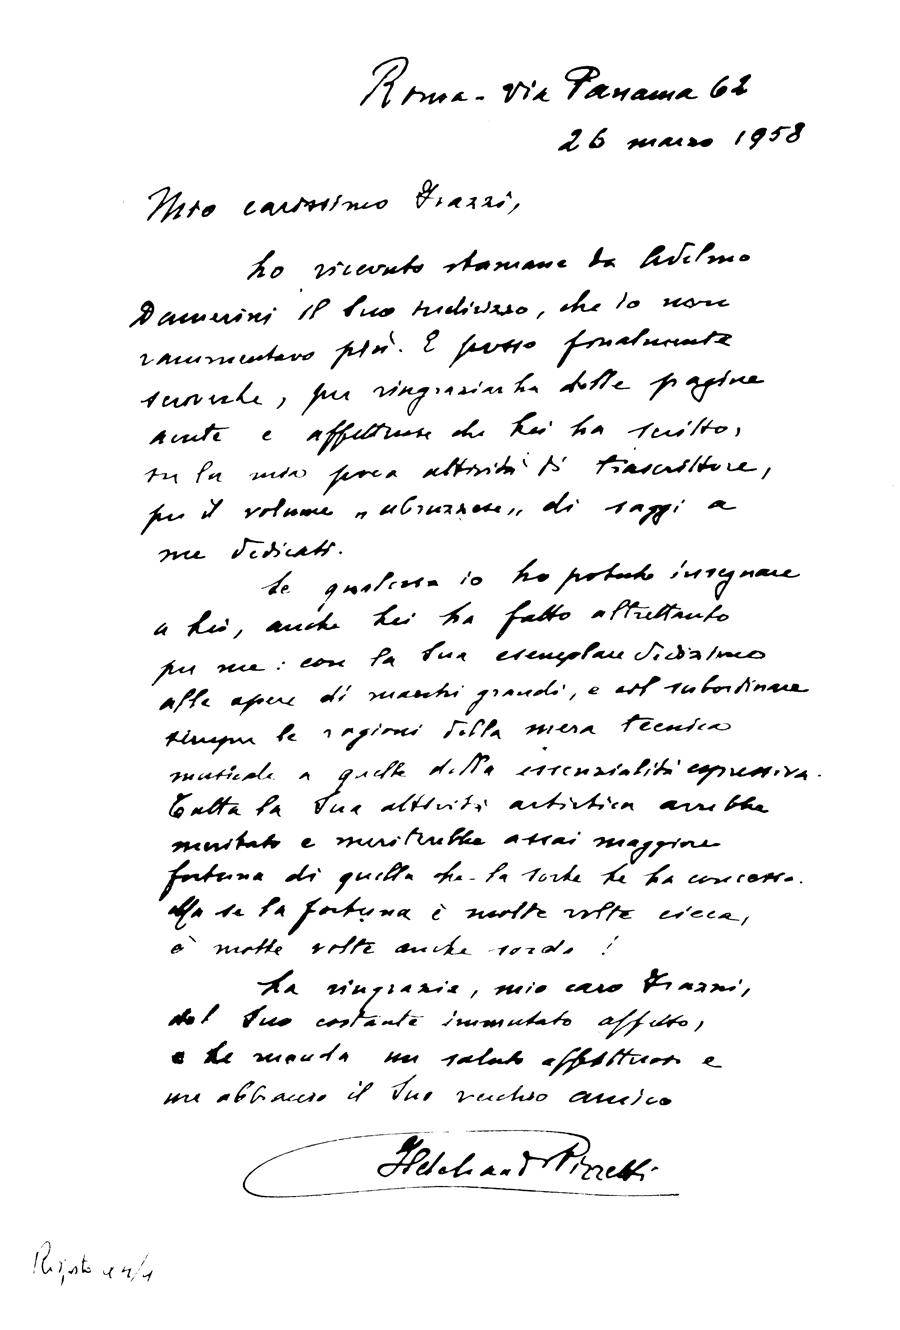 Roma - Via Panama 62
26 marzo 1958
Mio carissimo Frazzi,
ho ricevuto stamane da Adelmo
Damerini il Suo indirizzo, che io non
rammentavo più. E posso finalmente
scriverLe, per ringraziarLa delle pagine
acute e affettuose che Lei ha scritto,
su la mia poca attività di trascrittore,
per il volume „abruzzese„ di saggi a
me dedicati.
Se qualcosa io ho potuto insegnare
a Lei, anche Lei ha fatto altrettanto
per me: con la Sua esemplare dedizione
alle opere di maestri grandi, e col subordinare
sempre le ragioni della mera tecnica
musicale a quelle della essenzialità espressiva.
Tutta la Sua attività artistica avrebbe
meritato e meriterebbe assai maggiore
fortuna di quella che la sorte Le ha concessa.
Ma se la fortuna è molte volte cieca,
è molte volte anche sorda!
La ringrazio, mio caro Frazzi,
del Suo costante immutato affetto,
e Le manda un saluto affettuoso e
un abbraccio il Suo vecchio amico
Ildebrando Pizzetti
Risposto 4/4